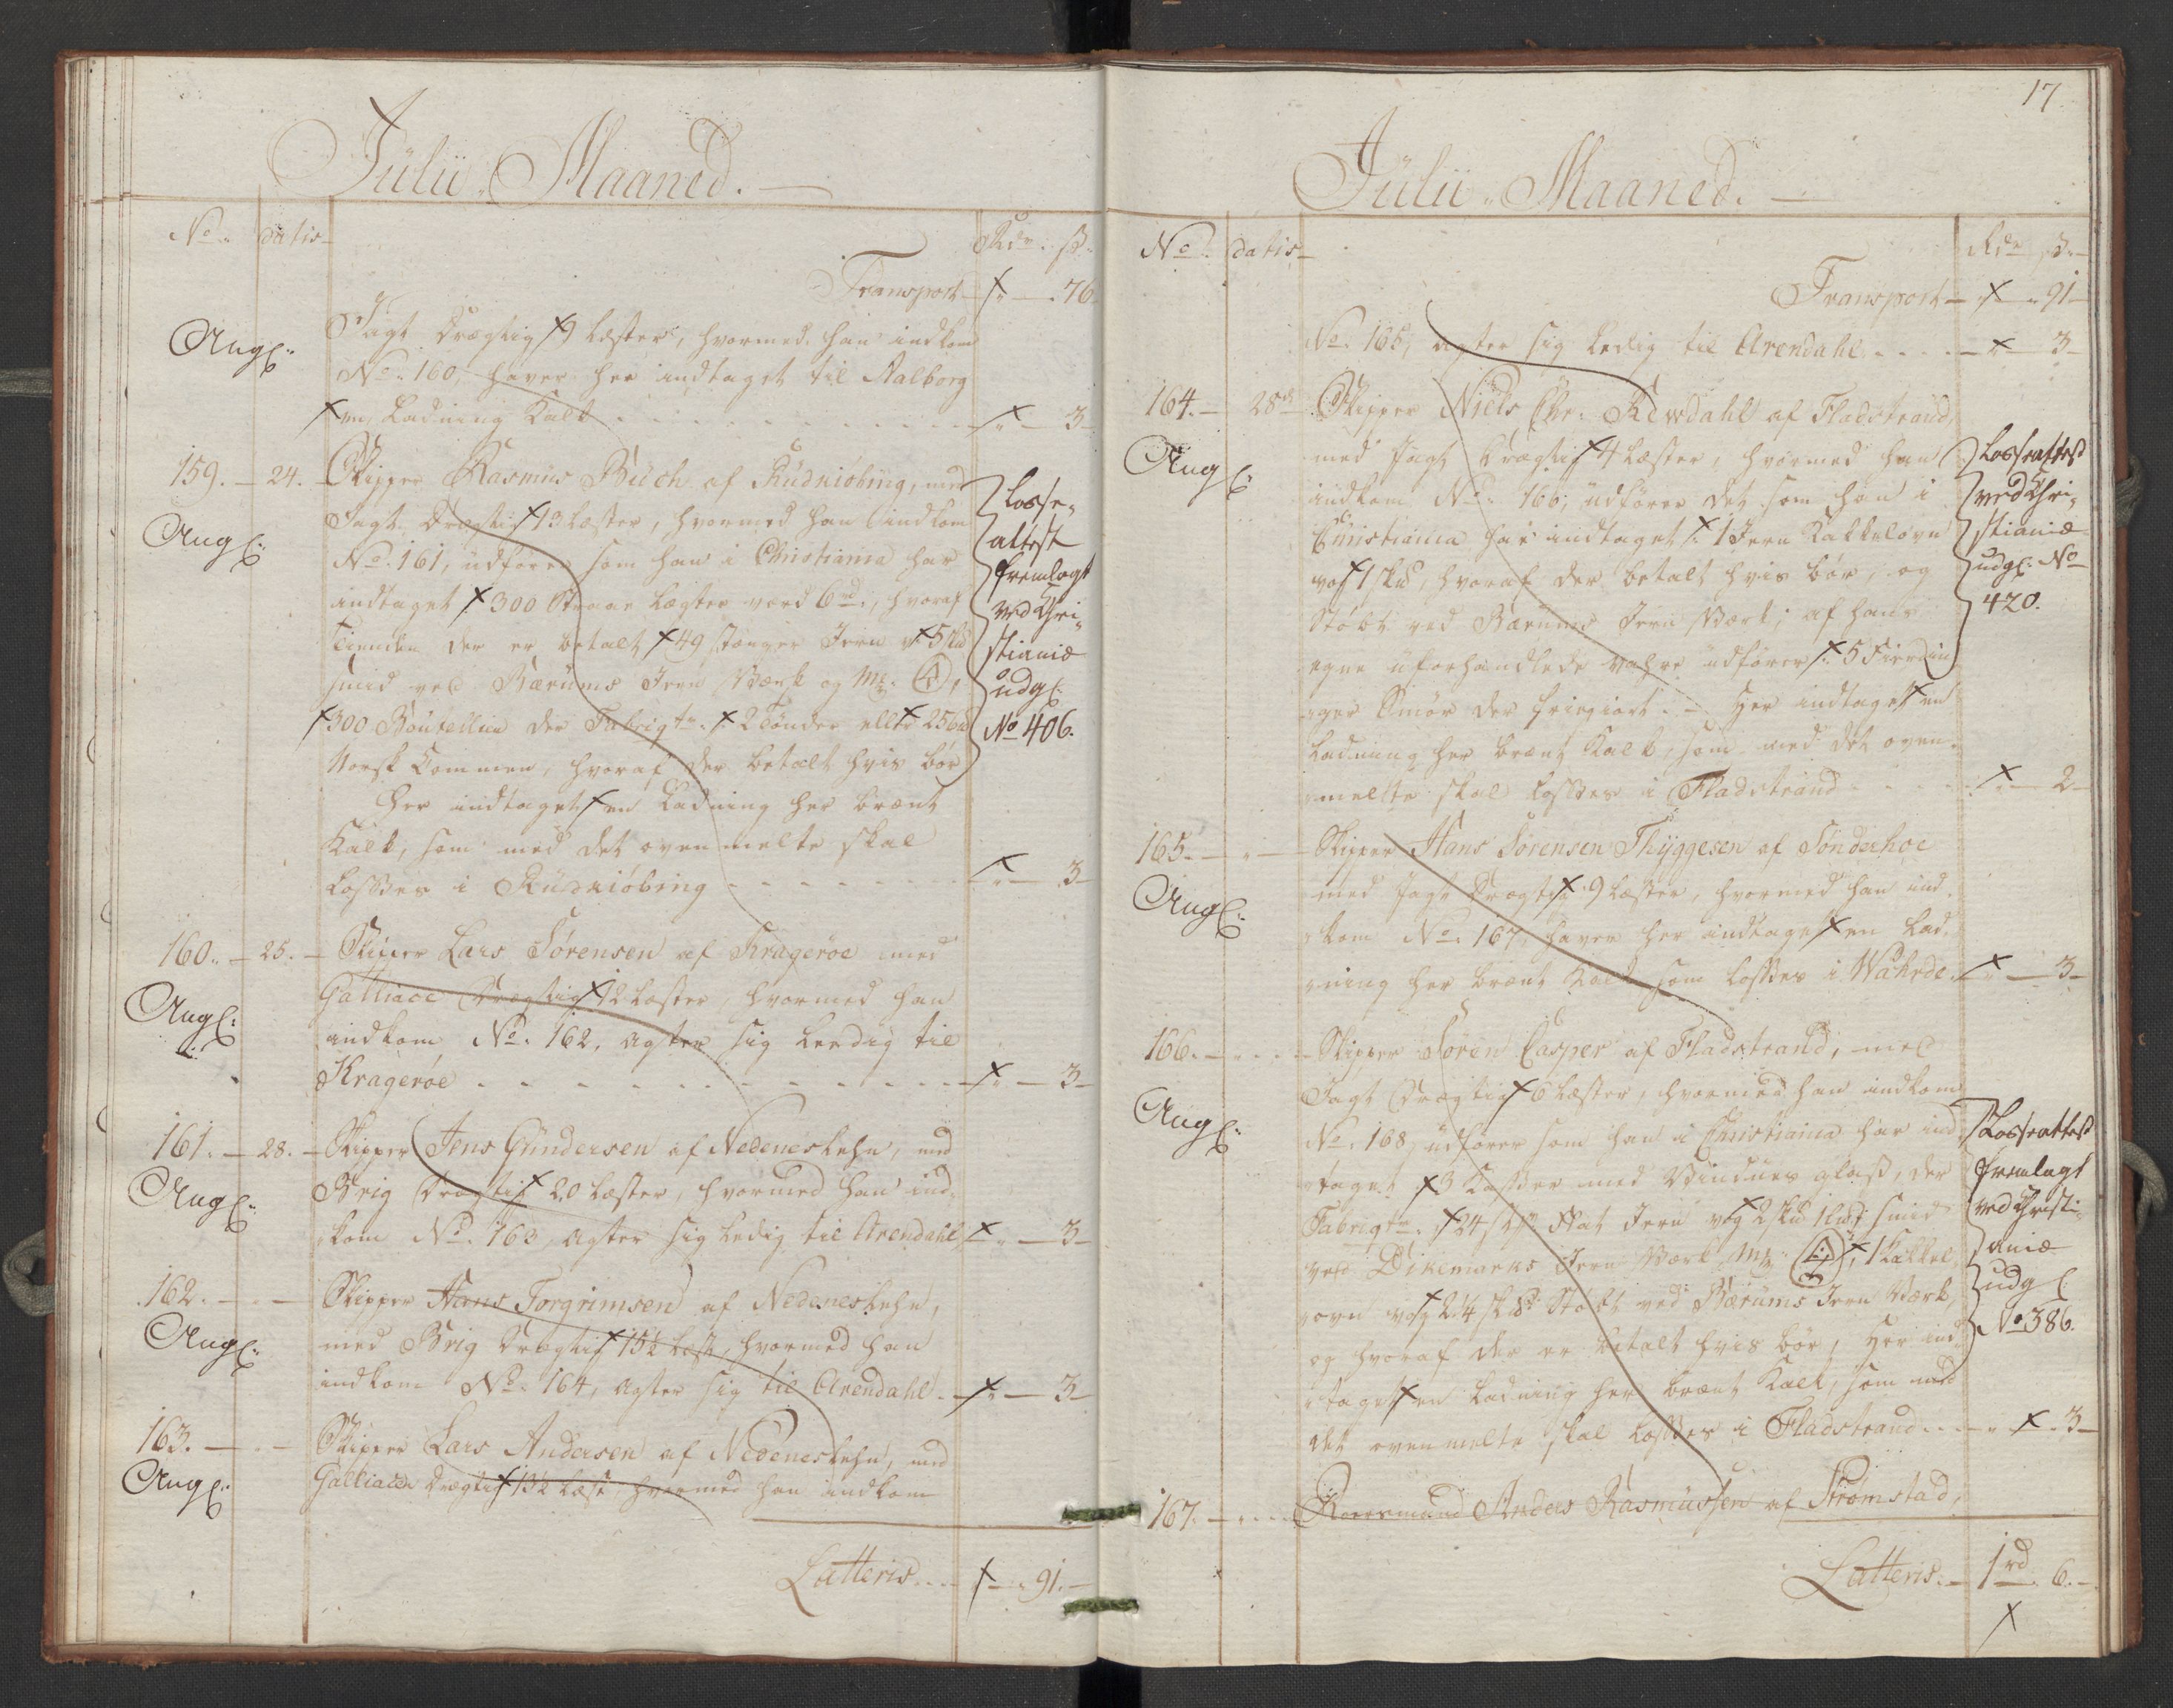 Julii Maaned.
No. datis Rdr. ß.
Transport " 76.
Jagt Drægtig 9 Læster, hvormed han indkom
Angl:
No. 160, haver her indtaget til Aalborg
en Ladning Kalk " 3
159. 24. Skipper Rasmus Buch af Rudkiøbing, med
Jagt Drægtig 13 Læster, hvormed han indkom
Angl:
No. 161, udfører som han i Christiania har
indtaget 300 Straae Lægter værd 6 rd., hvoraf
Tienden der er betalt, 49 stænger Jern v. 5 skt
smid ved Bærums Jern Værk og Mk.
300 Bouteiller der Fabrigt. 2 Tønder eller 256
Norsk Kommen, hvoraf der betalt hvis bør
Losse-
attest
fremlagt
ved Chri-
stianiæ
udgl:
No 406.
Her indtaget en Ladning her brænt
Kalk, som med det ovenmelte skal
losses i Rudkiøbing " 3
160. 25. Skipper Lars Sørensen af Kragerøe med
Galliace Drægtig 12 Læster, hvormed han
Angl:
indkom No. 162, agter sig Leedig til
Kragerøe " 3
161. 28. Skipper Jens Gundersen af Nedeneslehn, med
Angl:
Brig Drægtig 20 Læster, hvormed han ind-
kom No. 163, agter sig Ledig til Arendahl " 3
162. Skipper Hans Torgrimsen af Nedeneslehn,
Angl:
med Brig Drægtig 15½ Læst, hvormed han
indkom No. 164, agter sig til Arendahl " 3
163. Skipper Lars Andersen af Nedeneslehn, med
Angl:
Galliace Drægtig 13½ Læst hvormed han indkom
Latteris 91.
17.
Julii Maaned.
No. datis Rdr ß.
Transport " 91
No. 165, agter sig Ledig til Arendahl " 3
164. 28de Skipper Niels Chr. af Fladstrand,
med Jagt Drægtig 4 Læster, hvormed han
Angl:
indkom No. 166, udfører det som han i
Christiania har indtaget 1 Jern Kakkelovn
vog 1 skt, hvoraf der betalt hvis bør, og
Støbt ved Bærums Jern Værk; af hans
egne uforhandlede Vahre udfører 5 Fierdin-
ger Smør der Her indtaget en
Ladning her brænt Kalk, som med det oven-
melte skal losses i Fladstrand " 2
Losseattest
ved Chri-
stianiæ
udgl: No
420.
165. " Skipper Hans Sørensen Thyggesen af Sønderhoe
med Jagt Drægtig 9 Læster, hvormed han ind-
Angl:
kom No. 167, haver her indtaget en Lad-
ning her brænt Kalk som losses i Wahrde " 3
166. " Skipper Søren Casper af Fladstrand, med
Jagt Drægtig 6 Læster, hvormed han indkom
Angl:
No. 168, udfører som han i Christiania har ind-
taget 3 Kasser med Vindues glas, der
Fabrigt. 24 Jern vog 2 skt smid
ved Dikemarks Jern Værk Mk. 1 Kakkel-
ovn vog 2¼ skt Støbt ved Bærums Jern Værk,
og hvoraf der er betalt hvis bør, Her ind-
taget en Ladning her brænt Kalk, som med
det ovenmelte skal losses i Fladstrand " 3
Losseattest
fremlagt
ved Christi-
aniæ
udgl
No 386.
167. " Anders Rasmussen af Strømstad,
Latteris 1 rd 6.